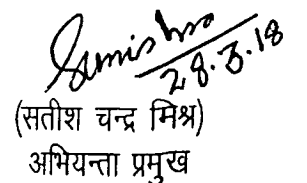 28.3.18
(सतीश चन्द्र मिश्र)
अभियन्ता प्रमुख